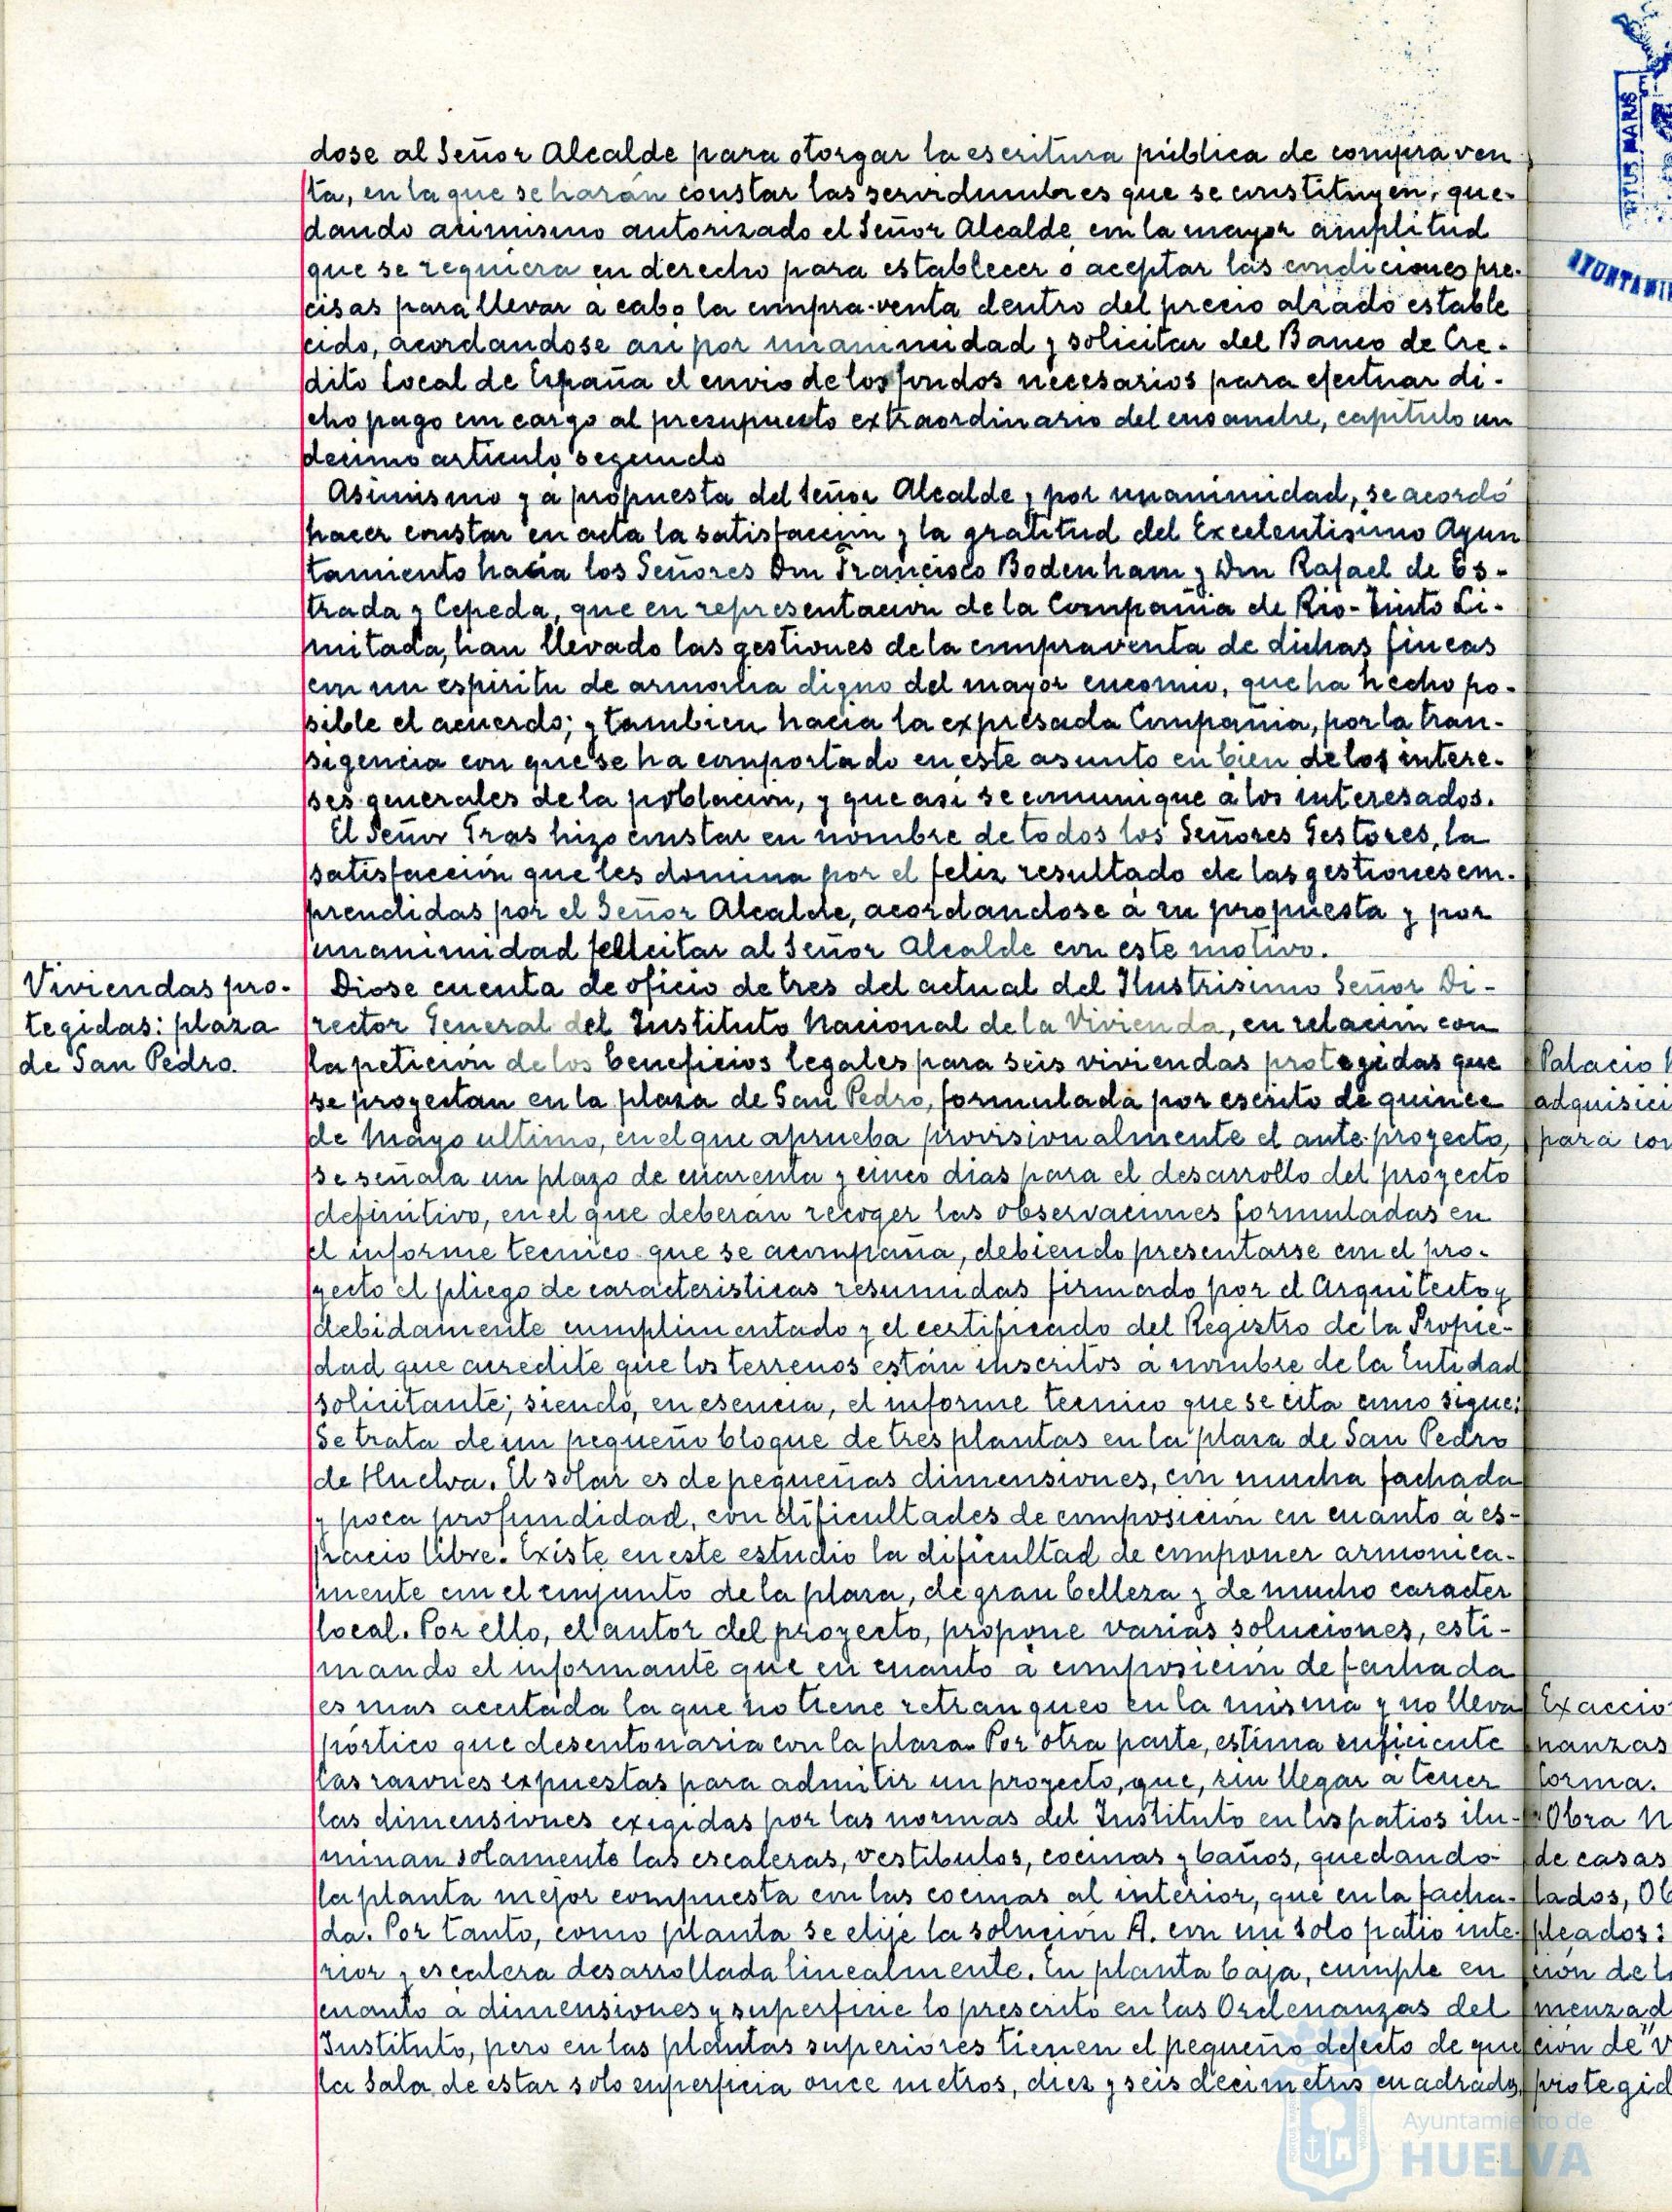 dose al Señor Alcalde para otorgar la escritura pública de compra ven
ta, en la que se harán constar las servidumbres que se constituyen, que-
dando asimismo autorizado el Señor Alcalde con la mayor amplitud
que se requiera en derecho para establecer o aceptar las condiciones pre-
cisas para llevar a cabo la compra-venta dentro del precio alzado estable
cido, acordandose asi por unanimidad y solicitar del Banco de Cre-
dito Local de España el envio de los fondos necesarios para efectuar di-
cho pago con cargo al presupuesto extraordinario del ensanche, capitulo un
decimo articulo segundo
Asimismo y a propuesta del Señor Alcalde, por unanimidad, se acordó
hacer constar en acta la satisfacción y la gratitud del Excelentisimo Ayun
tamiento hacia los Señores Don Francisco Bodenham y Don Rafael de Es-
trada y Cepeda, que en representacion de la Compañia de Rio-Tinto Li-
mitada, han llevado las gestiones de la compraventa de dichas fincas
con un espiritu de armonia digno del mayor encomio, que ha hecho po-
sible el acuerdo; y tambien hacia la expresada Compañia, por la tran-
sigencia con que se ha comportado en este asunto en bien de los intere-
ses generales de la poblacion, y que asi se comunique a los interesados.
El Señor Tras hizo constar en nombre de todos los Señores Gestores, la
satisfacción que les domina por el feliz resultado de las gestiones em-
prendidas por el Señor Alcalde, acordandose a su propuesta y por
unanimidad felicitar al Señor Alcalde con este motivo.
Viviendas pro-
tegidas: plaza
de San Pedro.
Diose cuenta de oficio de tres del actual del Ilustrisimo Señor Di-
rector General del Instituto Nacional de la Vivienda, en relacion con
la petición de los beneficios legales para seis viviendas protegidas que
se proyectan en la plaza de San Pedro, formulada por escrito de quince
de Mayo ultimo, en el que aprueba provisionalmente el ante-proyecto,
se señala un plazo de cuarenta y cinco dias para el desarrollo del proyecto
definitivo, en el que deberán recoger las observaciones formuladas en
el informe tecnico que se acompaña, debiendo presentarse con el pro-
yecto el pliego de caracteristicas resumidas firmado por el Arquitecto y
debidamente cumplimentado y el certificado del Registro de la Propie-
dad que acredite que los terrenos están inscritos a nombre de la Entidad
solicitante; siendo, en esencia, el informe tecnico que se cita como sigue:
Se trata de un pequeño bloque de tres plantas en la plaza de San Pedro
de Huelva. El solar es de pequeñas dimensiones, con mucha fachada
y poca profundidad, con dificultades de composición en cuanto a es-
pacio libre. Existe en este estudio la dificultad de componer armonica-
mente con el conjunto de la plaza, de gran belleza y de mucho caracter
local. Por ello, el autor del proyecto, propone varias soluciones, esti-
mando el informante que en cuanto a composición de fachada
es mas acertada la que no tiene retranqueo en la misma y no lleva
pórtico que desentonaria con la plaza. Por otra parte, estima suficiente
las razones expuestas para admitir un proyecto, que, sin llegar a tener
las dimensiones exigidas por las normas del Instituto en los patios ilu-
minan solamente las escaleras, vestibulos, cocinas y baños, quedando
la planta mejor compuesta con las cocinas al interior, que en la facha-
da. Por tanto, como planta se elije la solución A. con un solo patio inte-
rior y escalera desarrollada linealmente. En planta baja, cumple en
cuanto a dimensiones y superficie lo prescrito en las Ordenanzas del
Instituto, pero en las plantas superiores tienen el pequeño defecto de que
la sala de estar solo superficia once metros, diez y seis decimetros cuadrados,
Palacio
adquisici
para con
Exaccio
nanzas
forma.
Obra N
de casas
lados, Ob
pleados:
cion de l
menzad
cion de "v
protegid
Ayuntamiento de
HUELVA